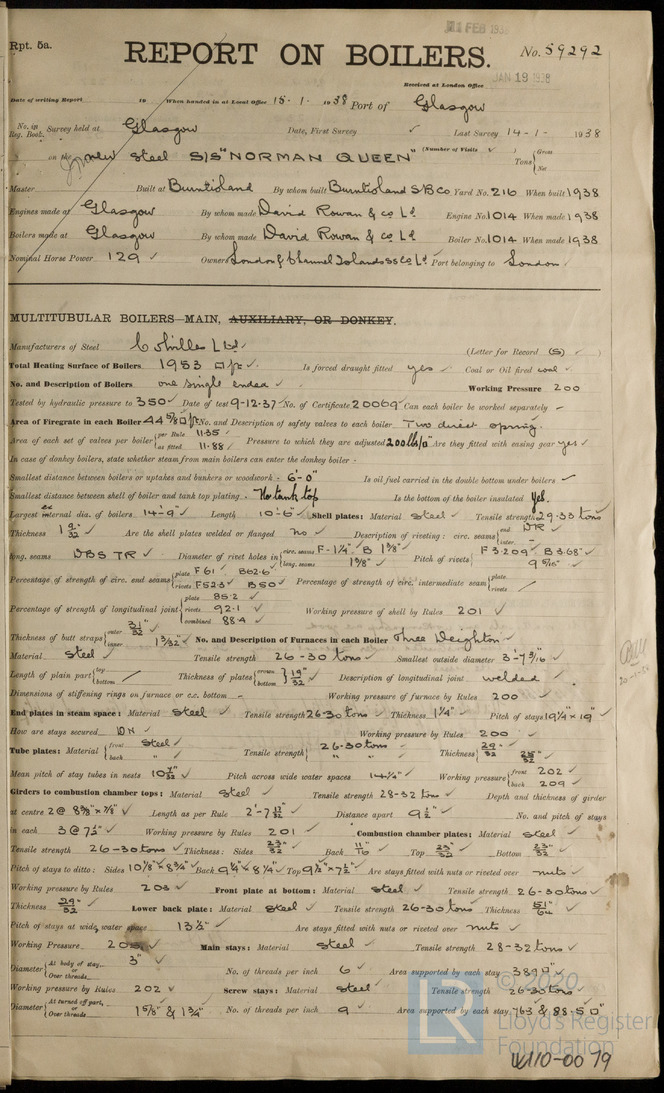 Rpt. 5a.
REPORT ON BOILERS.
No. 59292
FEB 193
JAN 19 1938
Received at London Office
Date of writing Report 19 When handed in at Local Office 15-1-1938 Port of Glasgow
No. in Reg. Book. Survey held at Glasgow Date, First Survey Last Survey 14-1-1938
on the new Steel S/S "NORMAN QUEEN" (Number of Visits ) Tons Gross Net
Master Built at Burntisland By whom built Burntisland S/B Co Yard No. 216 When built 1938
Engines made at Glasgow By whom made David Rowan & Co Ld Engine No. 1014 When made 1938
Boilers made at Glasgow By whom made David Rowan & Co Ld Boiler No. 1014 When made 1938
Nominal Horse Power 129 Owners London & Channel Islands SS Co Ld Port belonging to London
MULTITUBULAR BOILERS—MAIN, AUXILIARY, OR DONKEY.
Manufacturers of Steel Colvilles Ltd. (Letter for Record (S) )
Total Heating Surface of Boilers 1953 □ft. Is forced draught fitted yes Coal or Oil fired coal
No. and Description of Boilers one single ended Working Pressure 200
Tested by hydraulic pressure to 350 Date of test 9-12-37 No. of Certificate 20069 Can each boiler be worked separately –
Area of Firegrate in each Boiler 44 5/8 □ft No. and Description of safety valves to each boiler Two direct spring.
Area of each set of valves per boiler per Rule 11.35 as fitted 11.88 Pressure to which they are adjusted 200 lbs/□" Are they fitted with easing gear yes
In case of donkey boilers, state whether steam from main boilers can enter the donkey boiler -
Smallest distance between boilers or uptakes and bunkers or woodwork - 6'-0" Is oil fuel carried in the double bottom under boilers
Smallest distance between shell of boiler and tank top plating - No tank top Is the bottom of the boiler insulated Yes.
Largest ex internal dia. of boilers 14'-9" Length 10'-6" Shell plates: Material Steel Tensile strength 29-33 tons
Thickness 1 9/32" Are the shell plates welded or flanged no Description of riveting: circ. seams end DR inter.
long. seams DBS TR Diameter of rivet holes in circ. seams F-1 1/4" B 1 3/8" long. seams 1 3/8" Pitch of rivets F 3.209 B 3.68" 9 5/16"
Percentage of strength of circ. end seams plate F61 B62.6 rivets F52.3 B50 Percentage of strength of circ. intermediate seam plate rivets
Percentage of strength of longitudinal joint plate 85.2 rivets 92.1 combined 88.4 Working pressure of shell by Rules 201
Thickness of butt straps outer 31/32" inner 1 3/32" No. and Description of Furnaces in each Boiler Three Deighton
Material Steel Tensile strength 26-30 tons Smallest outside diameter 3'-7 5/16"
Length of plain part top bottom Thickness of plates crown bottom 19/32" Description of longitudinal joint welded
Dimensions of stiffening rings on furnace or c.c. bottom – Working pressure of furnace by Rules 200
End plates in steam space: Material Steel Tensile strength 26-30 tons Thickness 1 1/4" Pitch of stays 19 1/4" x 19"
How are stays secured DN Working pressure by Rules 200
Tube plates: Material front Steel back " Tensile strength 26-30 tons " " Thickness 29/32 25/32"
Mean pitch of stay tubes in nests 10 7/32" Pitch across wide water spaces 14 1/4" Working pressure front 202 back 209
Girders to combustion chamber tops: Material Steel Tensile strength 28-32 tons Depth and thickness of girder
at centre 2 @ 8 3/8" x 7/8" Length as per Rule 2'-7 17/32" Distance apart 9 1/2" No. and pitch of stays
in each 3 @ 7 1/2" Working pressure by Rules 201 Combustion chamber plates: Material Steel
Tensile strength 26-30 tons Thickness: Sides 23/32" Back 11/16" Top 23/32" Bottom 23/32"
Pitch of stays to ditto: Sides 10 1/8" x 8 3/4" Back 9 1/4" x 8 1/4" Top 9 1/2" x 7 1/2" Are stays fitted with nuts or riveted over nuts
Working pressure by Rules 203 Front plate at bottom: Material Steel Tensile strength 26-30 tons
Thickness 29/32" Lower back plate: Material Steel Tensile strength 26-30 tons Thickness 51/64"
Pitch of stays at wide water space 13 1/2" Are stays fitted with nuts or riveted over nuts
Working Pressure 203 Main stays: Material Steel Tensile strength 28-32 tons
Diameter At body of stay, or Over threads 3" No. of threads per inch 6 Area supported by each stay 389 □"
Working pressure by Rules 202 Screw stays: Material Steel Tensile strength 26-30 tons
Diameter At turned off part, or Over threads 1 5/8" & 1 3/4" No. of threads per inch 9 Area supported by each stay 76.3 & 88.5 □"
© 2020
Lloyd's Register
Foundation
W110-0079